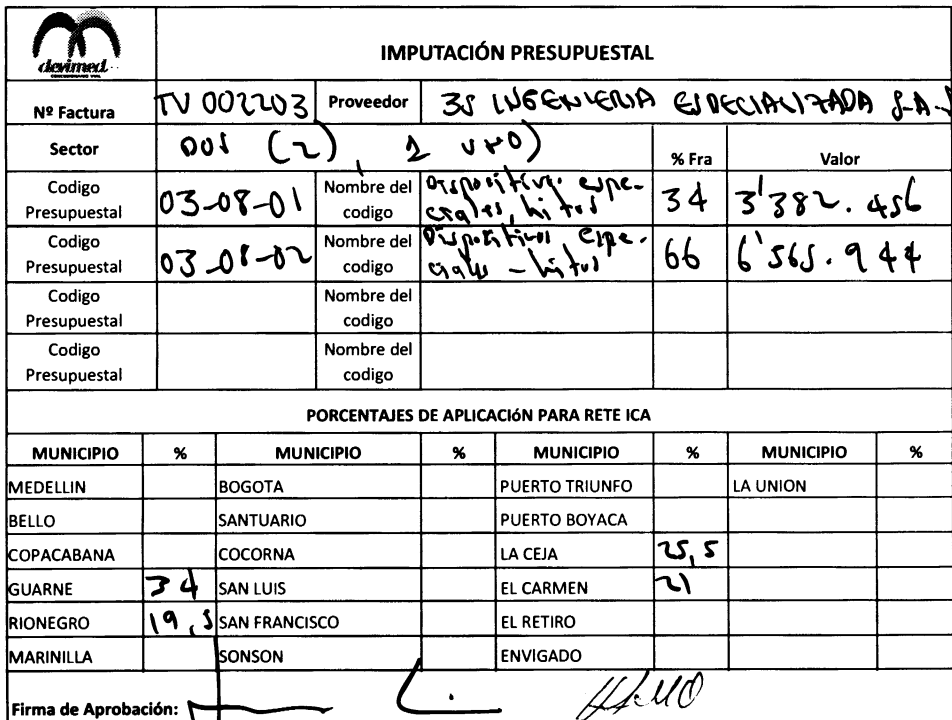 devimed
IMPUTACIÓN PRESUPUESTAL
Nº Factura TV 002203 Proveedor 3S INGENIERIA ESPECIALIZADA S.A.S
Sector DOS (2), 1 UNO) % Fra Valor
Codigo Presupuestal 03-08-01 Nombre del codigo Dispositivos espe-
ciales, hitos 34 3'382.456
Codigo Presupuestal 03-08-02 Nombre del codigo Dispositivos Espe-
ciales - hitos 66 6'565.944
Codigo Presupuestal Nombre del codigo
Codigo Presupuestal Nombre del codigo
PORCENTAJES DE APLICACIÓN PARA RETE ICA
MUNICIPIO % MUNICIPIO % MUNICIPIO % MUNICIPIO %
MEDELLIN BOGOTA PUERTO TRIUNFO LA UNION
BELLO SANTUARIO PUERTO BOYACA
COPACABANA COCORNA LA CEJA 25,5
GUARNE 34 SAN LUIS EL CARMEN 21
RIONEGRO 19,5 SAN FRANCISCO EL RETIRO
MARINILLA SONSON ENVIGADO
Firma de Aprobación: